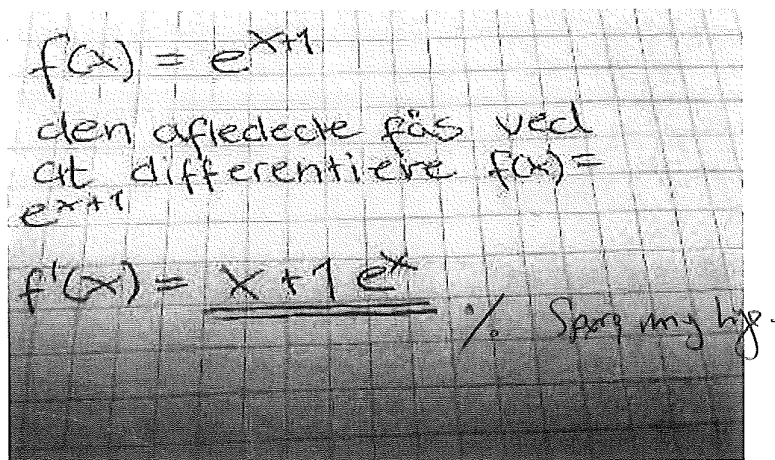 f(x) = e^x+1
den afledede fås ved
at differentiere f(x) =
e^x+1
f'(x) = x + 1 e^x
% Spørg mig lige.